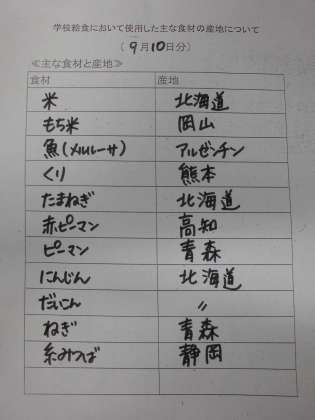 学校給食において使用した主な食材の産地について
(9月10日分)
≪主な食材と産地≫
食材 産地
米 北海道
もち米 岡山
魚(メルルーサ) アルゼンチン
くり 熊本
たまねぎ 北海道
赤ピーマン 高知
ピーマン 青森
にんじん 北海道
だいこん 〃
ねぎ 青森
糸みつば 静岡